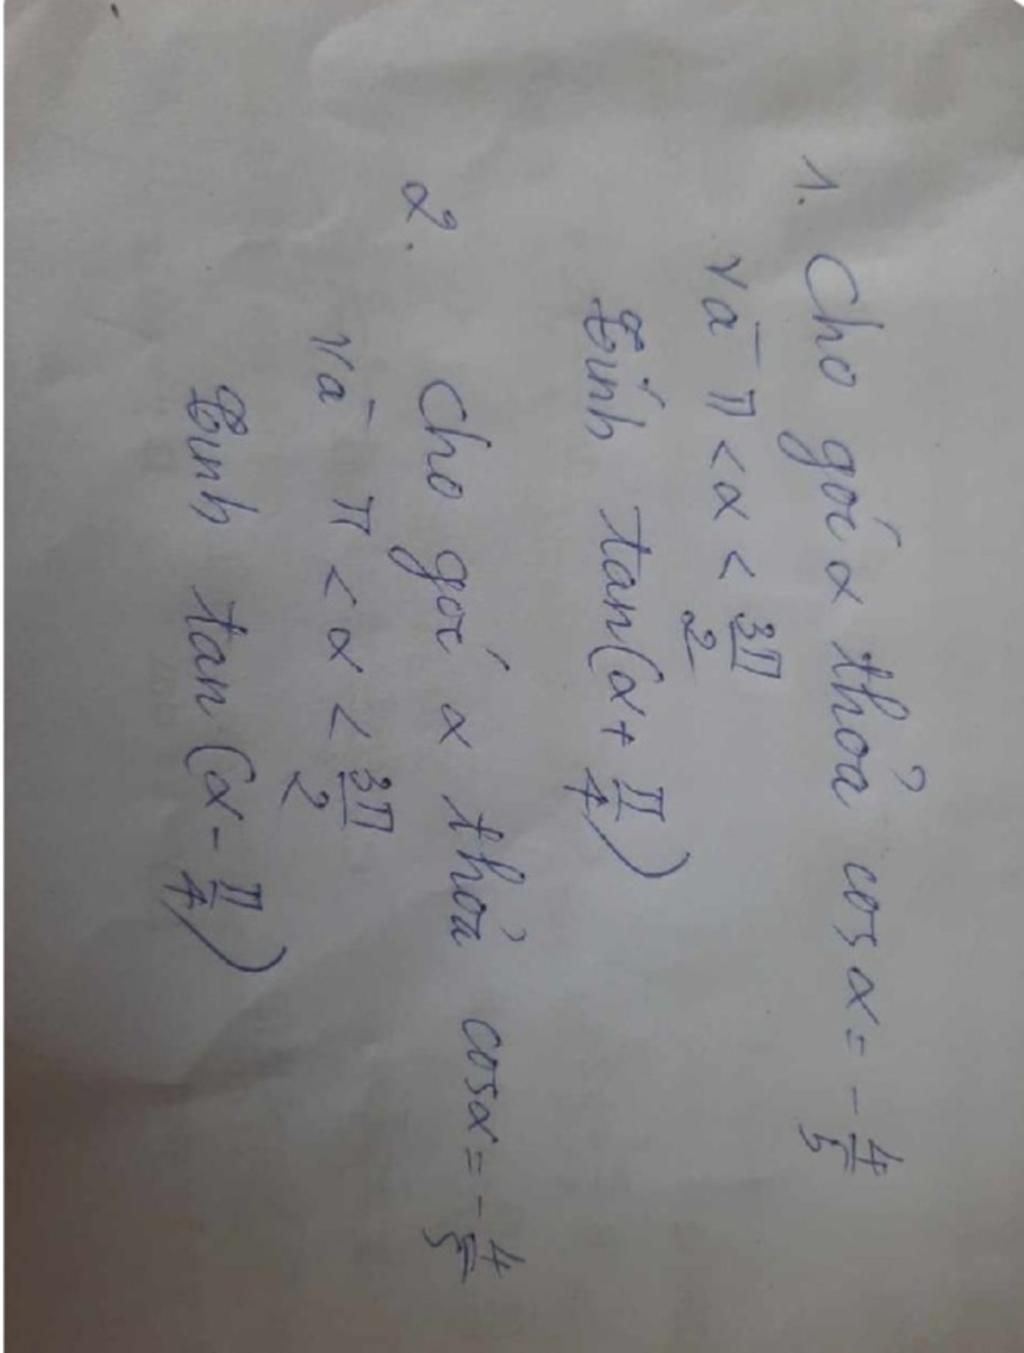 1. Cho góc α thỏa cosα = -4/5
và π < α < 3π/2
Tính tan(α + π/4)
2. Cho góc α thỏa cosα = -4/5
và π < α < 3π/2
Tính tan(α - π/4)